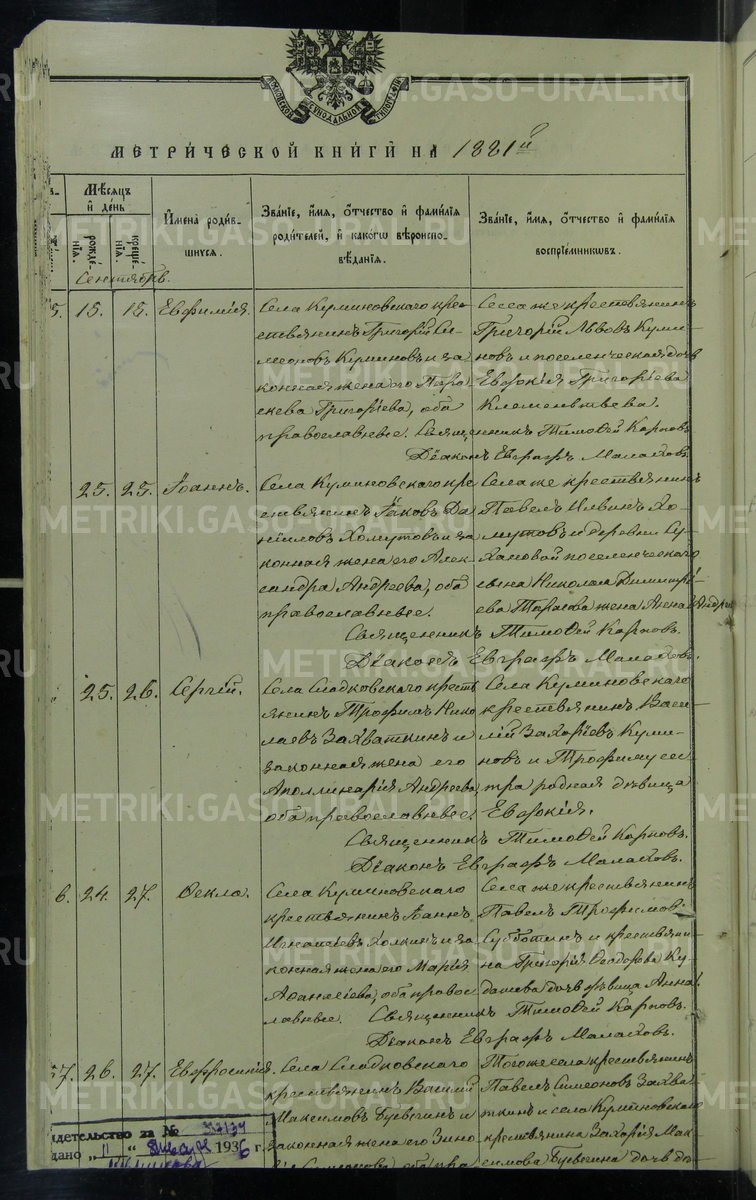 МЕТРИ́ЧЕСКОЙ КНИ́ГИ НА 1881й
Мѣ́сяцъ и҆ де́нь
рожде́нїя.
креще́нїя.
И҆мена̀ роди́вшихся.
Зва́нїе, и҆́мя, ѻ҆́тчество и҆ фами́лїя родителей, и҆ какогѡ вѣроисповѣ́данїя.
Зва́нїе, и҆́мя, ѻ҆́тчество и҆ фами́лїя воспрїе́мниковъ.
Сентябрь.
5. 15. 15. Евфимія. Села Куминовскаго крестьянинъ Григорій Симеоновъ Куминовъ и законная жена его Параскева Григоріева, оба православные.
Села же крестьянинъ Григорій Львовъ Куминовъ и поселенческая дочь Евдокія Григоріева Клементьева.
Священникъ Тимоѳей Карповъ.
Діаконъ Евграфъ Малаховъ.
25. 25. Іоаннъ. Села Куминовскаго крестьянинъ Іаковъ Даніиловъ Хомутовъ и законная жена его Александра Андреева, оба православные.
Села же крестьянинъ Павелъ Ильинъ Хомутовъ и деревни Сухановой поселенческаго сына Николая Димитріева Тарасова жена Анна Андре
Священникъ Тимоѳей Карповъ.
Діаконъ Евграфъ Малаховъ.
25. 26. Сергій. Села Сладковскаго крестьянинъ Трофимъ Николаевъ Захваткинъ и законная жена его Аполлинарія Андреева, оба православные.
Села Куминовскаго крестьянинъ Василій Захаріевъ Куминовъ и Трофиму сестра родная дѣвица Евдокія.
Священникъ Тимоѳей Карповъ.
Діаконъ Евграфъ Малаховъ.
6. 24. 27. Ѳекла. Села Куминовскаго крестьянинъ Іоаннъ Игнатіевъ Холкинъ и законная жена его Марія Аѳанасіева, оба православные.
Села же крестьянинъ Павелъ Трофимовъ Субботинъ и крестьянина Григорія Ѳеодорова Кудашева дочь дѣвица Анна.
Священникъ Тимоѳей Карповъ.
Діаконъ Евграфъ Малаховъ.
27. 26. 27. Евфросинія. Села Сладковскаго крестьянинъ Василій Максимовъ и законная жена его Зиновія Симеонова, оба пра
Тогоже села крестьянинъ Павелъ Симеоновъ Захваткинъ и села Куминовскаго крестьянина Захарія Максимова дочь
идетельство за №
дано „11“ января 1936 г.
METRIKI.GASO-URAL.RU